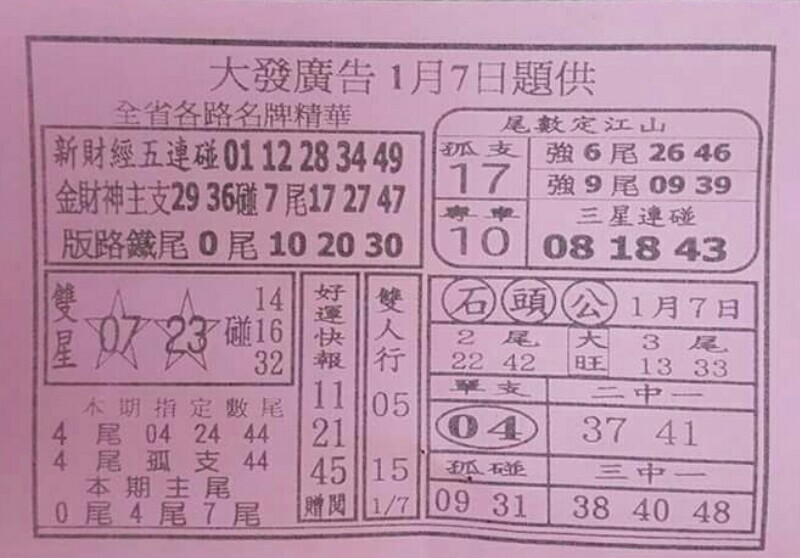 大發廣告1月7日題供
全省各路名牌精華
新財經五連碰01 12 28 34 49
金財神主支29 36碰7尾17 27 47
版路鐵尾0尾10 20 30
尾數定江山
孤支
17
專車
10
強6尾26 46
強9尾09 39
三星連碰
08 18 43
雙星
07 23
碰
14
16
32
本期指定數尾
4尾04 24 44
4尾孤支44
本期主尾
0尾4尾7尾
好運快報
11
21
45
贈閱
雙人行
05
15
1/7
石頭公1月7日
2尾
22 42
大旺
3尾
13 33
單支
04
二中一
37 41
孤碰
09 31
三中一
38 40 48